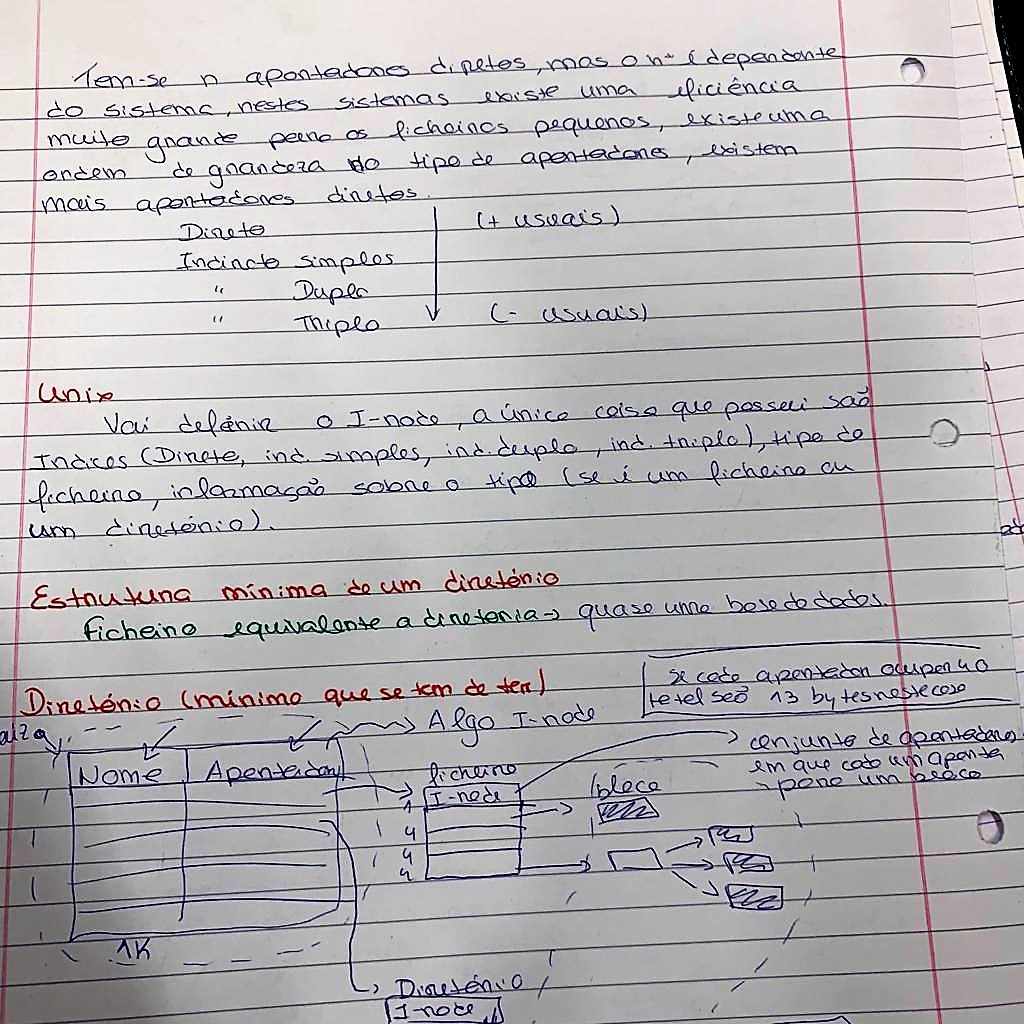 Tem-se n apontadores diretos, mas o nº é dependente
do sistema, nestes sistemas existe uma eficiência
muito grande para os ficheiros pequenos, existe uma
ordem de grandeza do tipo de apontadores, existem
mais apontadores diretos.
Direto (+ usuais)
Indireto simples
" Duplo
" Triplo (- usuais)
Unix
Vai definir o I-node, a única coisa que possui são
Indices (Direto, ind. simples, ind. duplo, ind. triplo), tipo do
ficheiro, informação sobre o tipo (se é um ficheiro ou
um diretório).
Estrutura mínima de um diretório
ficheiro equivalente a diretoria → quase uma base de dados.
Diretório (mínimo que se tem de ter)
se cada apontador ocupar 4 o
total são 13 bytes neste caso
Algo I-node
conjunto de apontadores
em que cada um aponta
para um bloco
Nome Apontador
ficheiro
I-node
bloco
1
4
4
4
1K
Diretório
I-node